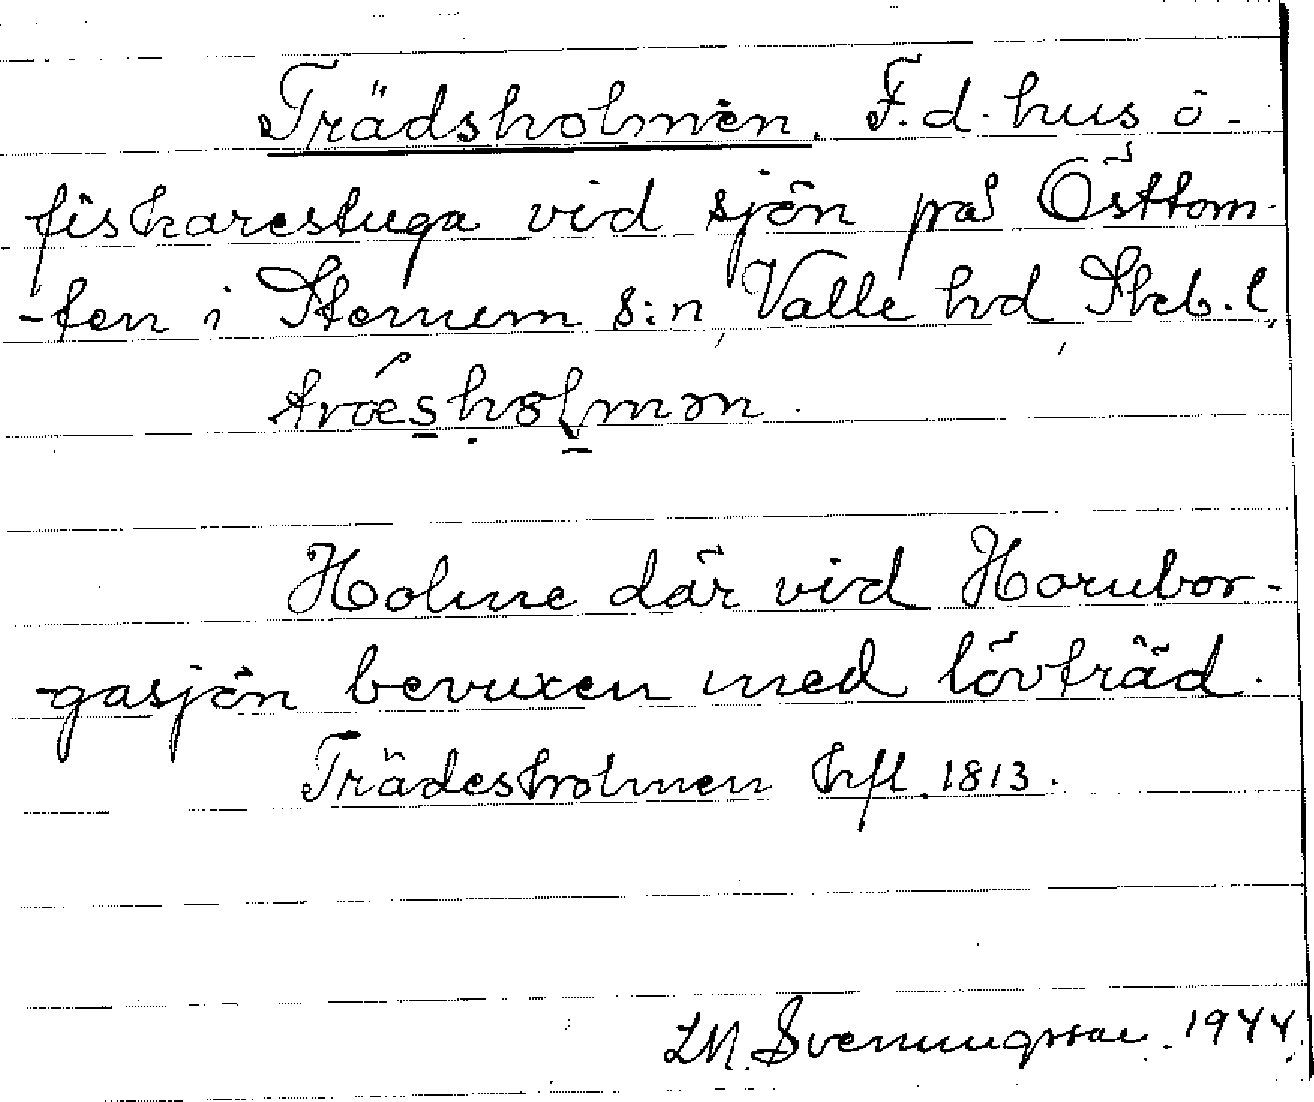 Trädsholmen. F.d. hus o.
fiskarestuga vid sjön på Östtom-
-ten i Stenum s:n, Valle hd, Skb. l.
Holme där vid Hornbor-
-gasjön bevuxen med lövträd.
Trädesholmen hfl. 1813.
Svenungsson. 1944.